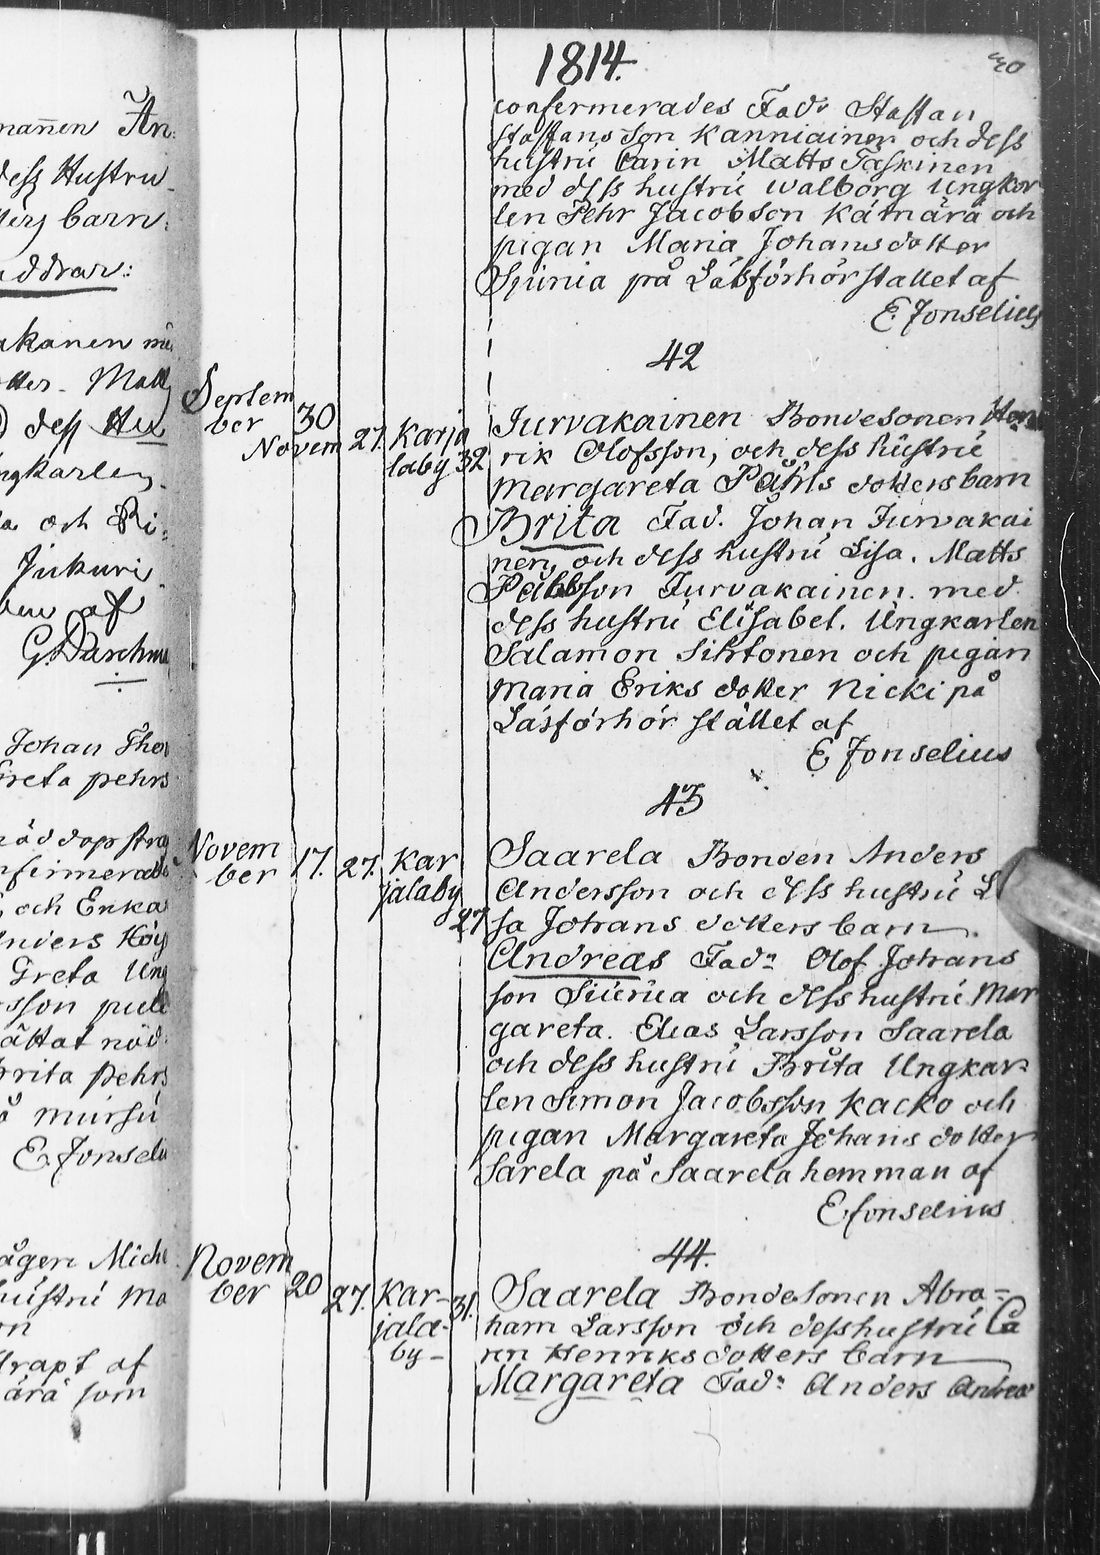 1814.
30
confermerades Fadr Staffan
Staffans son Kanniainen och dess
hustru Carin Matts Taskinen
med dess hustru Walborg Ungkor
len Pehr Jacobson Kámärä och
pigan Maria Johansdotter
Siuria på Läsförhör stallet af
E. Jonselius
42
Septem
ber 30
Novem 27. Karja
laby 32
Jurvakainen Bondesonen Hen
rik Olofsson, och dess hustru
Margareta Påhls dotters barn
Brita Fad. Johan Jurvakai
nen, och dess hustru Lisa. Matts
Påhlsson Jurvakainen. med
dess hustru Elisabet. Ungkarlen
Salamon Sihtonen och pigan
Maria Eriks dotter Nicki på
Läsförhör stället af
E Jonselius
43
Novem
ber 17. 27. Kar
jalaby
27
Saarela Bonden Anders
Andersson och dess hustru L
sa Johans dotters barn
Andreas Fadr Olof Johans
son Siuria och dess hustru Mar
gareta. Elias Larsson Saarela
och dess hustru Brita Ungkar
len Simon Jacobsson Kacko och
pigan Margareta Johans dotter
Sarela på Saarela hemman af
E Jonselius
44.
Novem
ber 20 27. Kar-
jala-
by-
31.
Saarela Bondesonen Abra=
ham Larsson och dess hustru Ca
rin Henriks dotters barn
Margareta Fadr Anders Andrea
mannen An:
dess Hustru
barn:
addrar:
akanen
Matts
dess Hu
ngkarlen
och Ri:
Jukuri
af
Johan Tho
Greta pehrs
och Erika
Anders
Greta Ung
sson
rita Pehrs
Mursu
E. Jonseli
ågen Miche
hustru Ma
af
som